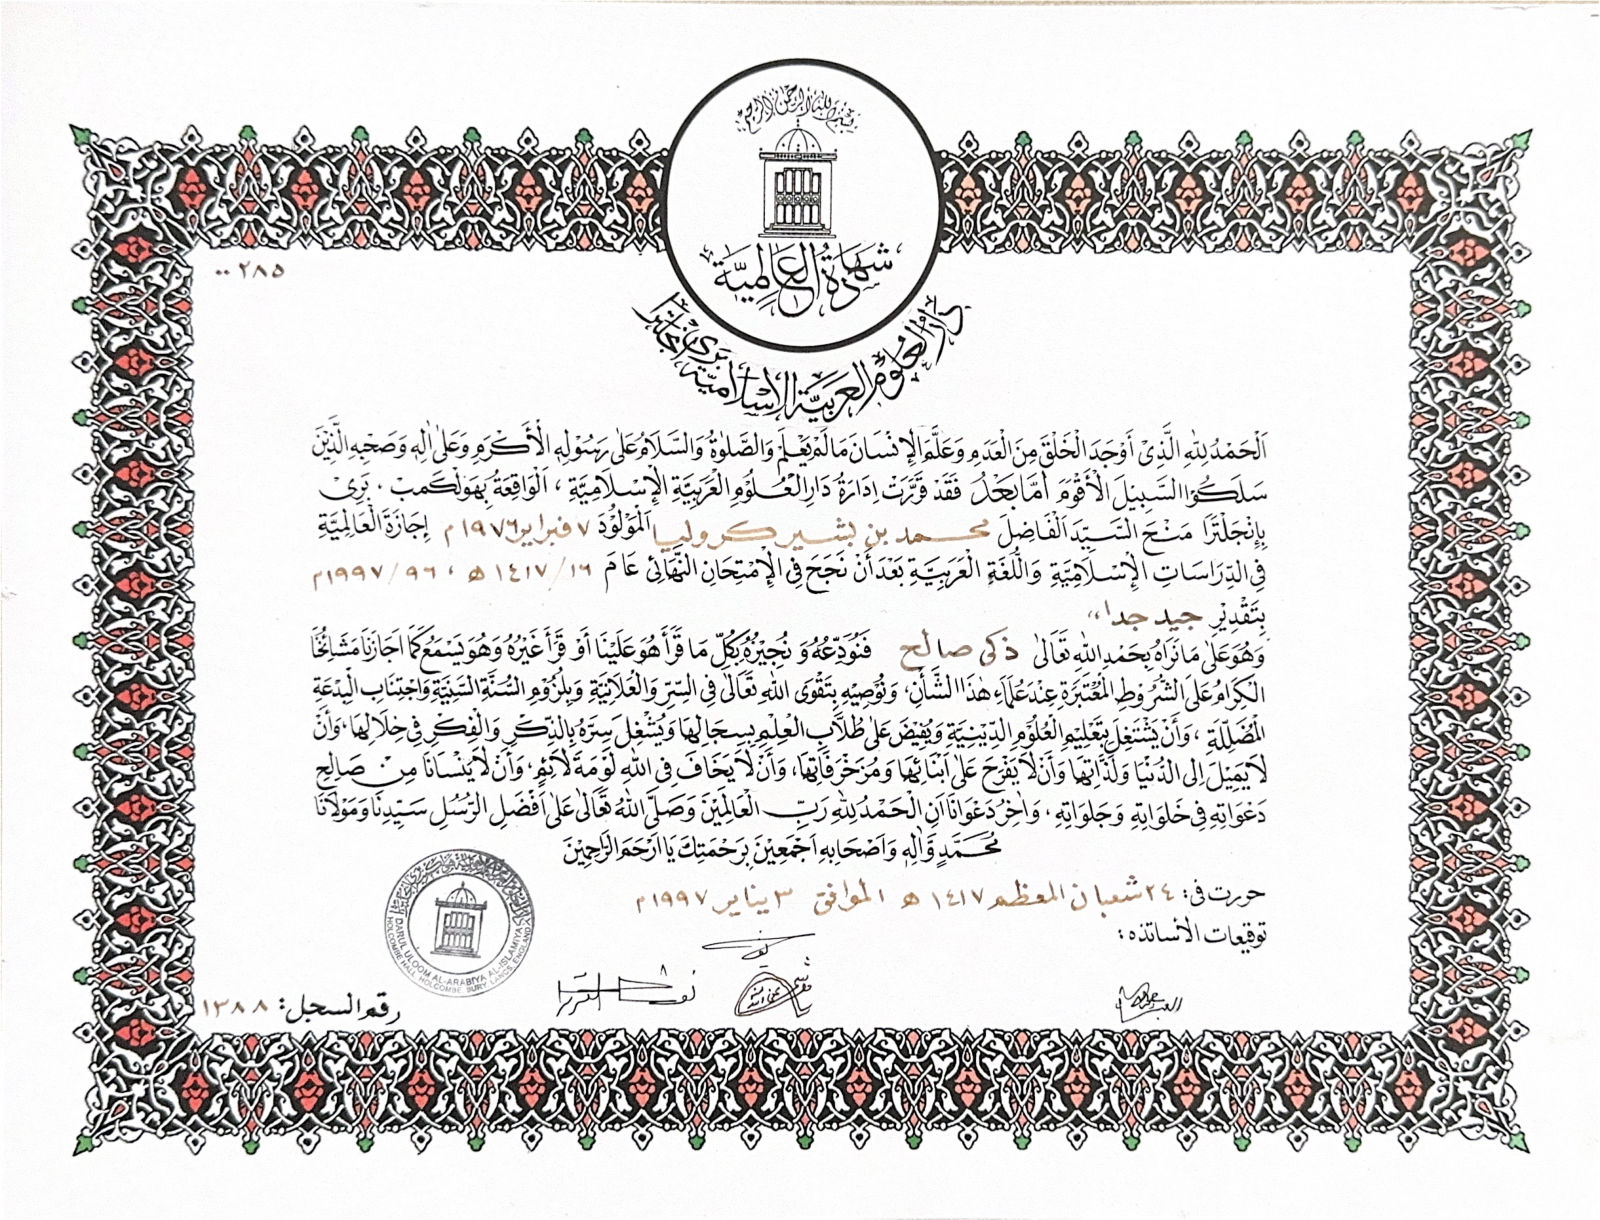 بسم الله الرحمن الرحيم
شهادة العالمية
دار العلوم العربية الإسلامية بري انجلترا
٢٨٥٠٠
اَلْحَمْدُ لِلّٰهِ الَّذِىْ أَوْجَدَ الْخَلْقَ مِنَ الْعَدَمِ وَعَلَّمَ الْاِنْسَانَ مَالَمْ يَعْلَمْ وَالصَّلٰوةُ وَالسَّلَامُ عَلٰى رَسُوْلِهِ الْأَكْرَمِ وَعَلٰى اٰلِهٖ وَصَحْبِهِ الَّذِيْنَ
سَلَكُوْا السَّبِيْلَ الْأَقْوَمَ أَمَّا بَعْدُ فَقَدْ قَرَّرَتْ اِدَارَةُ دَارِ الْعُلُوْمِ الْعَرَبِيَّةِ الْاِسْلَامِيَّةِ ، اَلْوَاقِعَةُ بِهَوْلْكَمْبْ . بَرِىْ
بِاِنْجَلْتَرَا مَنْحَ السَّيِّدِ الْفَاضِلِ محمد بن بشير كروليا اَلْمَوْلُوْدَ ٧ فبراير ١٩٧٦م إِجَازَةَ الْعَالِمِيَّةِ
فِى الدِّرَاسَاتِ الْاِسْلَامِيَّةِ وَاللُّغَةِ الْعَرَبِيَّةِ بَعْدَ أَنْ نَجَحَ فِى الْاِمْتِحَانِ النِّهَائِىِّ عَامَ ١٤١٧/١٦ هـ ، ١٩٩٧/٩٦م
بِتَقْدِيْرِ جيد جدا
وَهُوَ عَلٰى مَا نَرَاهُ بِحَمْدِ اللّٰهِ تَعَالٰى ذكي صالح فَنُوَدِّعُهُ وَ نُجِيْزُهُ بِكُلِّ مَا قَرَأَ هُوَ عَلَيْنَا أَوْ قَرَأَ غَيْرُهُ وَهُوَ يَسْمَعُ كَمَا اَجَازَنَا مَشَائِخُنَا
الْكِرَامُ عَلَى الشُّرُوْطِ الْمُعْتَبَرَةِ عِنْدَ عُلَمَاءِ هٰذَا الشَّأْنِ، وَنُوْصِيْهِ بِتَقْوَى اللّٰهِ تَعَالٰى فِى السِّرِّ وَالْعَلَانِيَةِ وَبِلُزُوْمِ السُّنَّةِ السَّنِيَّةِ وَاجْتِنَابِ الْبِدْعَةِ
الْمُضَلِّلَةِ ، وَأَنْ يَشْتَغِلَ بِتَعْلِيْمِ الْعُلُوْمِ الدِّيْنِيَّةِ وَيُفِيْضَ عَلٰى طُلَّابِ الْعِلْمِ بِسِجَالِهَا وَيُشْغِلَ سِرَّهُ بِالذِّكْرِ وَالْفِكْرِ فِى خِلَالِهَا، وَأَنْ
لَا يَمِيْلَ اِلَى الدُّنْيَا وَلَذَّاتِهَا وَأَنْ لَا يَفْرَحَ عَلٰى اَبْنَائِهَا وَمُزَخْرَفَاتِهَا، وَأَنْ لَا يَخَافَ فِى اللّٰهِ لَوْمَةَ لَائِمٍ، وَأَنْ لَا يَنْسَانَا مِنْ صَالِحِ
دَعَوَاتِهِ فِى خَلَوَاتِهِ وَجَلَوَاتِهِ ، وَاٰخِرُ دَعْوَانَا اَنِ الْحَمْدُ لِلّٰهِ رَبِّ الْعَالَمِيْنَ وَصَلَّى اللّٰهُ تَعَالٰى عَلٰى اَفْضَلِ الرُّسُلِ سَيِّدِنَا وَمَوْلَانَا
مُحَمَّدٍ وَّاٰلِهٖ وَاَصْحَابِهِ اَجْمَعِيْنَ بِرَحْمَتِكَ يَا اَرْحَمَ الرَّاحِمِيْنَ
حررت في: ٢٤ شعبان المعظم ١٤١٧ هـ الموافق ٣ يناير ١٩٩٧م
توقيعات الأساتذه :
DARUL ULOOM AL-ARABIYA AL-ISLAMIYA
HOLCOMBE HALL HOLCOMBE BURY LANCS. ENGLAND
رقم السجل: ١٣٨٨